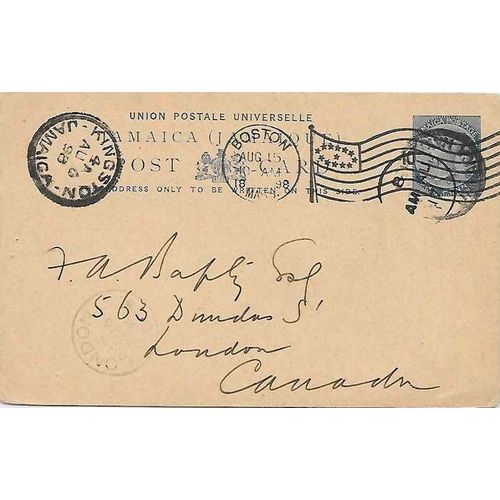 UNION POSTALE UNIVERSELLE
JAMAICA (JAMAIQUE)
POST CARD
ADDRESS ONLY TO BE WRITTEN ON THIS SIDE.
KINGSTON - JAMAICA
AU 6
98
BOSTON
AUG 15
-AM
18 98
MASS.
8
AM
F. A. Bapty Esq
563 Dundas St
London
Canada
LONDON